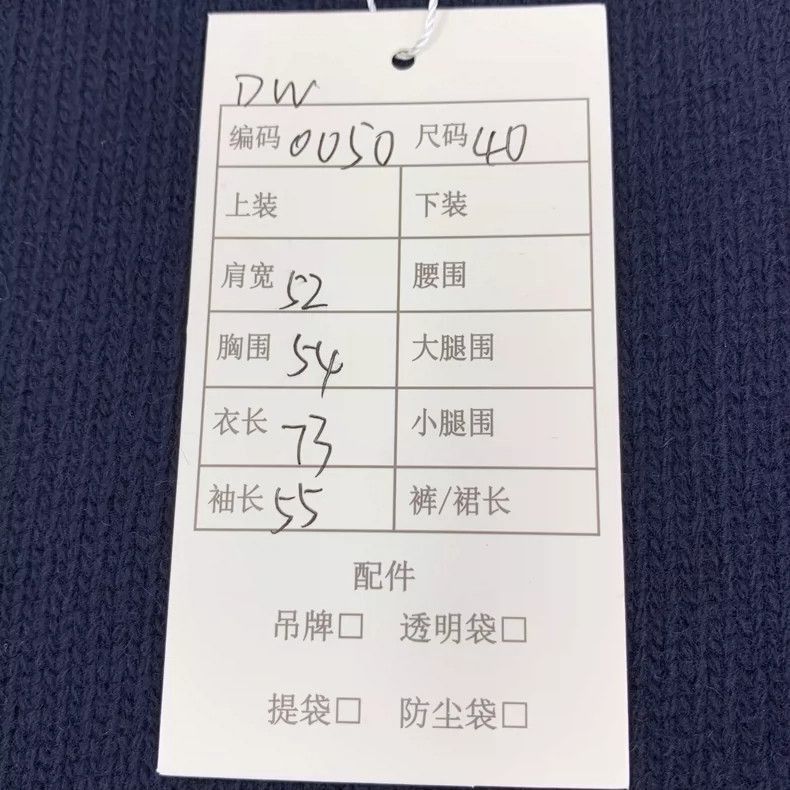 DW
编码 0050 尺码 40
上装 下装
肩宽 52 腰围
胸围 54 大腿围
衣长 73 小腿围
袖长 55 裤/裙长
配件
吊牌□ 透明袋□
提袋□ 防尘袋□